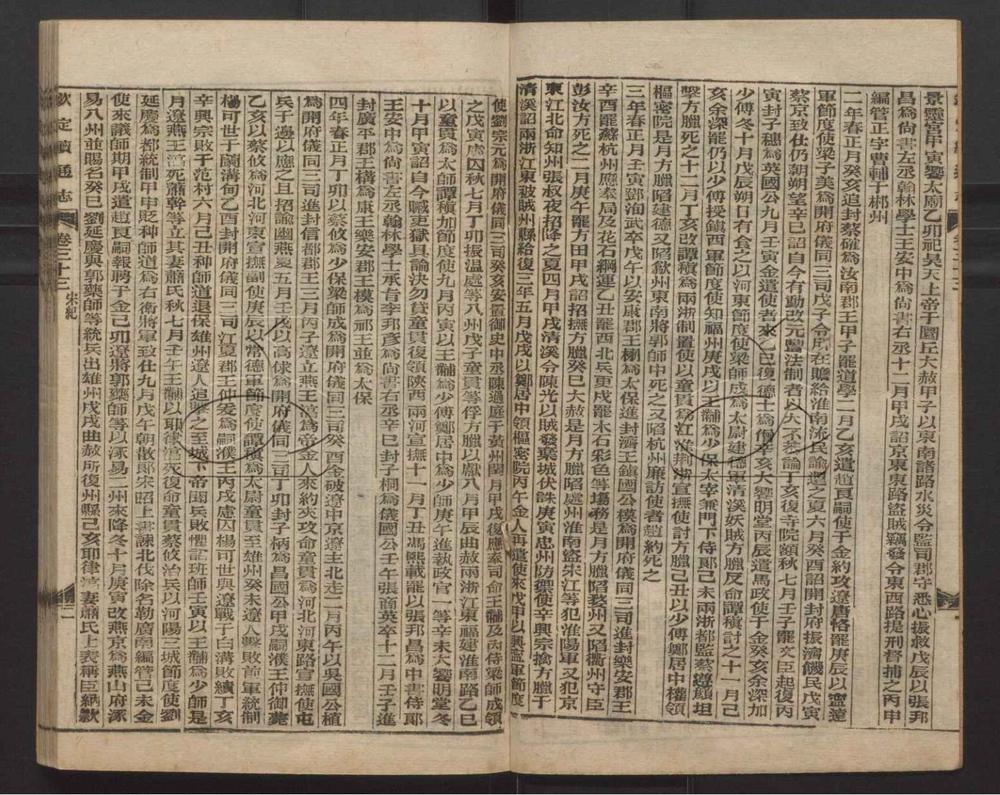 景靈宮甲寅饗太廟乙卯祀昊天上帝于圜丘大赦甲子以東南諸路水災令監司郡守悉心振救戊辰以張邦
昌爲尚書左丞翰林學士王安中爲尚書右丞十二月甲戌詔京東東路盜賊竊發令東西路提刑督捕之丙申
編管正字曹輔于郴州
二年春正月癸亥追封蔡確爲汝南郡王甲子罷道學二月乙亥遣趙良嗣使于金約攻遼唐恪罷庚辰以寧遠
軍節度使梁子美爲開府儀同三司戊子令所在贍給淮南流民諭還之夏六月癸酉詔開封府振濟饑民戊寅
蔡京致仕仍朝朔望辛巳詔自今有動改元豐法制者以大不恭論丁亥復寺院額秋七月壬子罷文臣起復丙
寅封子穗爲英國公九月壬寅金遣使者來乙巳復德士爲僧辛亥大饗明堂丙辰遣馬政使于金癸亥余深加
少傅冬十月戊辰朔日有食之以河東節度使梁師成爲太尉建德軍清溪妖賊方臘反命譚稹討之十一月己
亥余深罷仍以少傅授鎮西軍節度使知福州庚戌以王黼爲少保太宰兼門下侍郎己未兩浙都監蔡遵顏坦
擊方臘死之十二月丁亥改譚稹爲兩浙制置使以童貫爲江淮荆浙宣撫使討方臘己丑以少傅鄭居中權領
樞密院是月方臘陷建德又陷歙州東南將郭師中死之又陷杭州廉訪使者趙約死之
三年春正月壬寅鄧洵武卒戊午以安康郡王栩爲太保進封濟王鎮國公模爲開府儀同三司進封樂安郡王
辛酉罷蘇杭州應奉局及花石綱運乙丑罷西北兵更戍罷木石彩色等場務是月方臘陷婺州又陷衢州守臣
彭汝方死之二月庚午罷方田甲戌詔招撫方臘癸巳大赦是月方臘陷處州淮南盜宋江等犯淮陽軍又犯京
東江北命知州張叔夜招降之夏四月甲戌清溪令陳光以賊發棄城伏誅庚寅忠州防禦使辛興宗擒方臘于
清溪詔兩浙江東被賊州縣給復三年五月戊戌以鄭居中領樞密院丙午金人再遣使來戊申以興寧軍節度
使劉宗元爲開府儀同三司癸亥安置御史中丞陳過庭于黃州閏月甲戌復應奉司命王黼及內侍梁師成領
之戊寅慮囚秋七月丁卯振溫處等八州戊子童貫等俘方臘以獻八月甲辰曲赦兩浙江東福建淮南路乙巳
以童貫爲太師譚稹加節度使九月丙寅以王黼爲少傅鄭居中爲少師庚午進執政官一等辛未大饗明堂冬
十月甲寅詔自今贓吏獄具論決勿貸童貫復領陝西兩河宣撫十一月丁丑馮熙載罷以張邦昌爲中書侍郎
王安中爲尚書左丞翰林學士承旨李邦彥爲尚書右丞辛巳封子桐爲儀國公壬午張商英卒十二月壬子進
封廣平郡王構爲康王樂安郡王模爲祁王並爲太保
四年春正月丁卯以蔡攸爲少保梁師成爲開府儀同三司癸酉金破遼中京遼主北走二月丙午以吳國公植
爲開府儀同三司進封信都郡王三月丙子遼立燕王淳爲帝金人來約夾攻命童貫爲河北河東路宣撫使屯
兵于邊以應之且招諭幽燕夏五月壬戌以高俅爲開府儀同三司丁卯封子柄爲昌國公甲戌嗣濮王仲御薨
乙亥以蔡攸爲河北河東宣撫副使庚辰以常德軍節度使譚稹爲太尉童貫至雄州癸未遼人擊敗前軍統制
楊可世于蘭溝甸乙酉封開府儀同三司江夏郡王仲爰爲嗣濮王丙戌慮囚楊可世與遼戰于白溝敗績丁亥
辛興宗敗于范村六月己丑种師道退保雄州遼人追擊之至城下帝聞兵敗懼詔班師壬寅以王黼爲少師是
月遼燕王淳死蕭幹等立其妻蕭氏秋七月壬午王黼以耶律淳死復命童貫蔡攸治兵以河陽三城節度使劉
延慶爲都統制甲申貶种師道爲右衛將軍致仕九月戊午朝散郎宋昭上書諫北伐除名勒廣南編管己未金
使來議師期甲戌遣趙良嗣報聘于金己卯遼將郭藥師等以涿易二州來降冬十月庚寅改燕京爲燕山府涿
易八州並賜名癸巳劉延慶與郭藥師等統兵出雄州戊戌曲赦所復州縣己亥耶律淳妻蕭氏上表稱臣納款
欽定續通志 卷三十三 宋紀 二